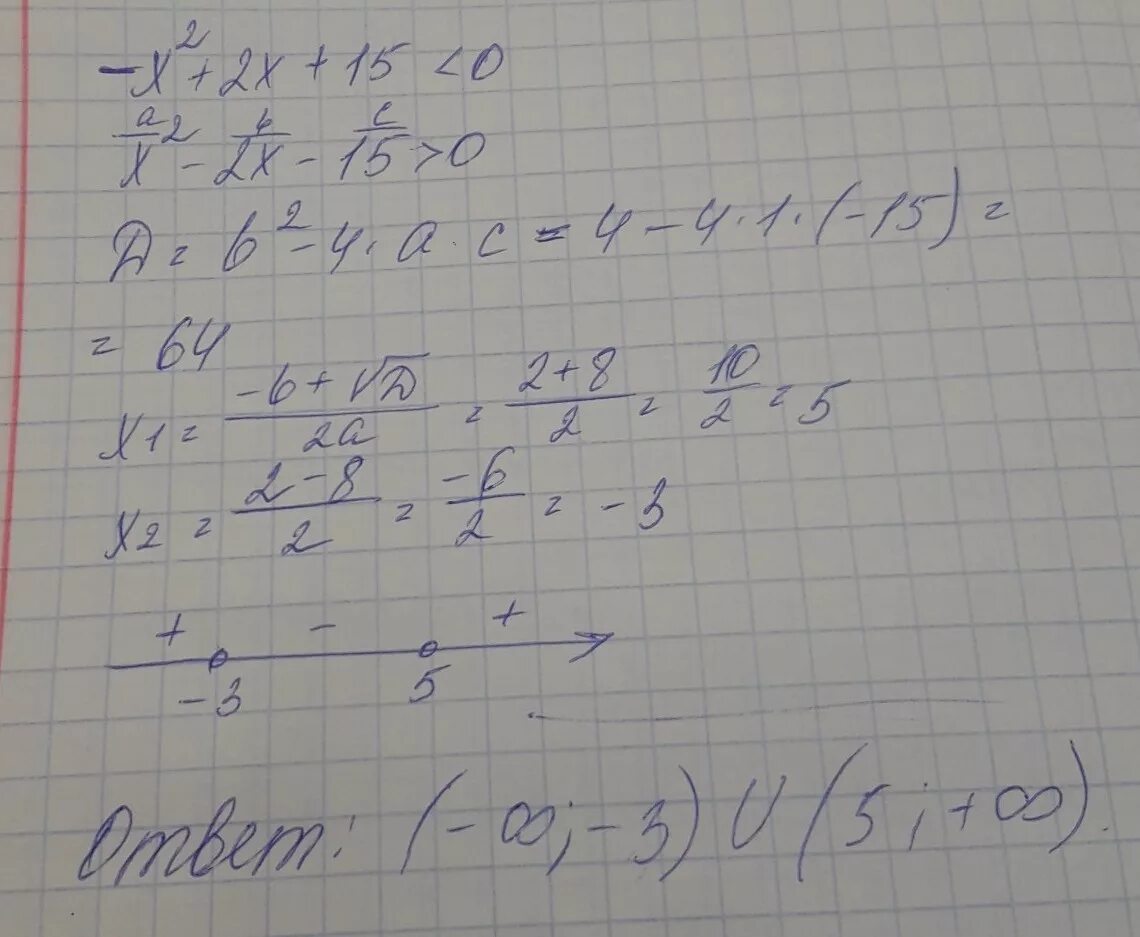 -x² + 2x + 15 < 0
a b c
x² - 2x - 15 > 0
D = b² - 4 · a · c = 4 - 4 · 1 · (-15) =
= 64
x1 = (-b + √D)/2a = (2+8)/2 = 10/2 = 5
x2 = (2-8)/2 = -6/2 = -3
+ - +
-3 5
Ответ: (-∞; -3) U (5; +∞).